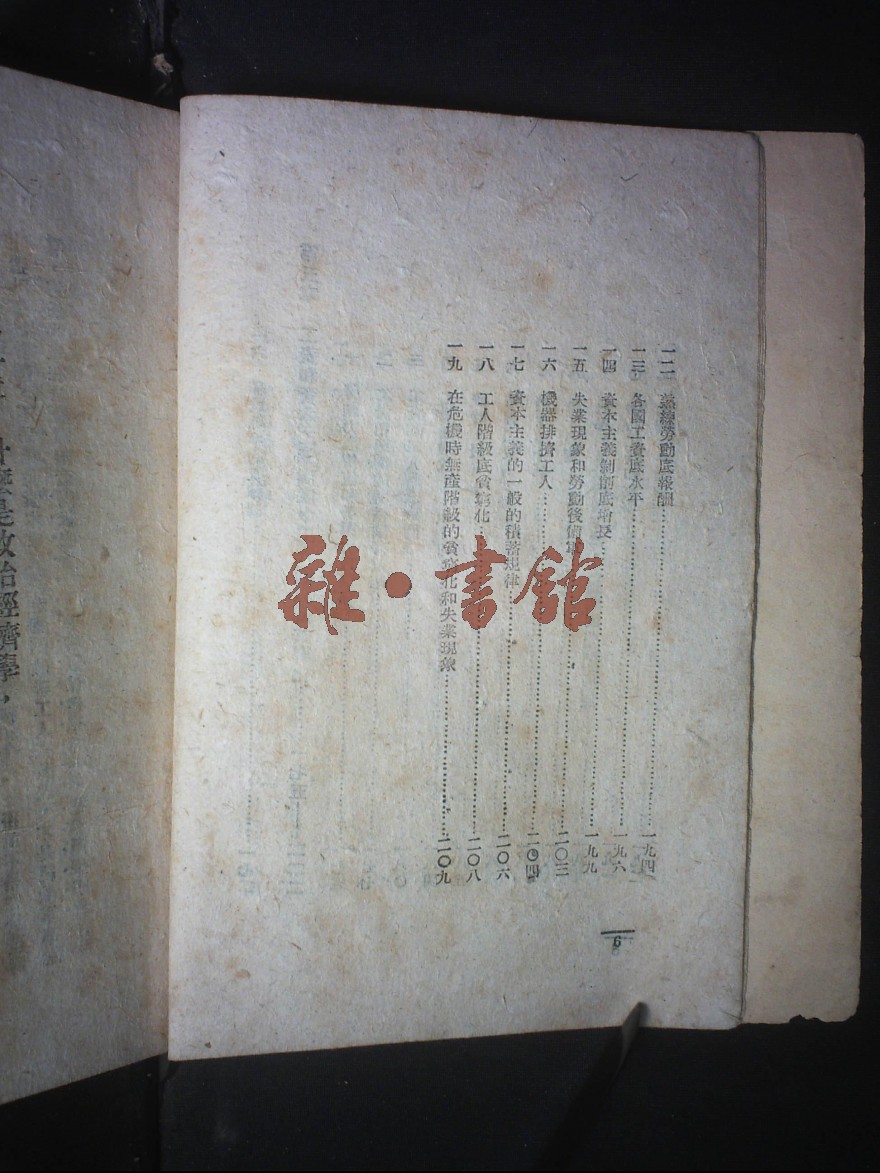 一二 熟練勞動底報酬……一九四
一三 各國工資底水平……一九六
一四 資本主義剝削底增長……一九九
一五 失業現象和勞動後備軍……二〇三
一六 機器排擠工人……二〇四
一七 資本主義的一般的積蓄規律……二〇六
一八 工人階級底貧窮化……二〇八
一九 在危機時無產階級的貧窮化和失業現象……二〇九
6
什麼是政治經濟學，
雜·書館